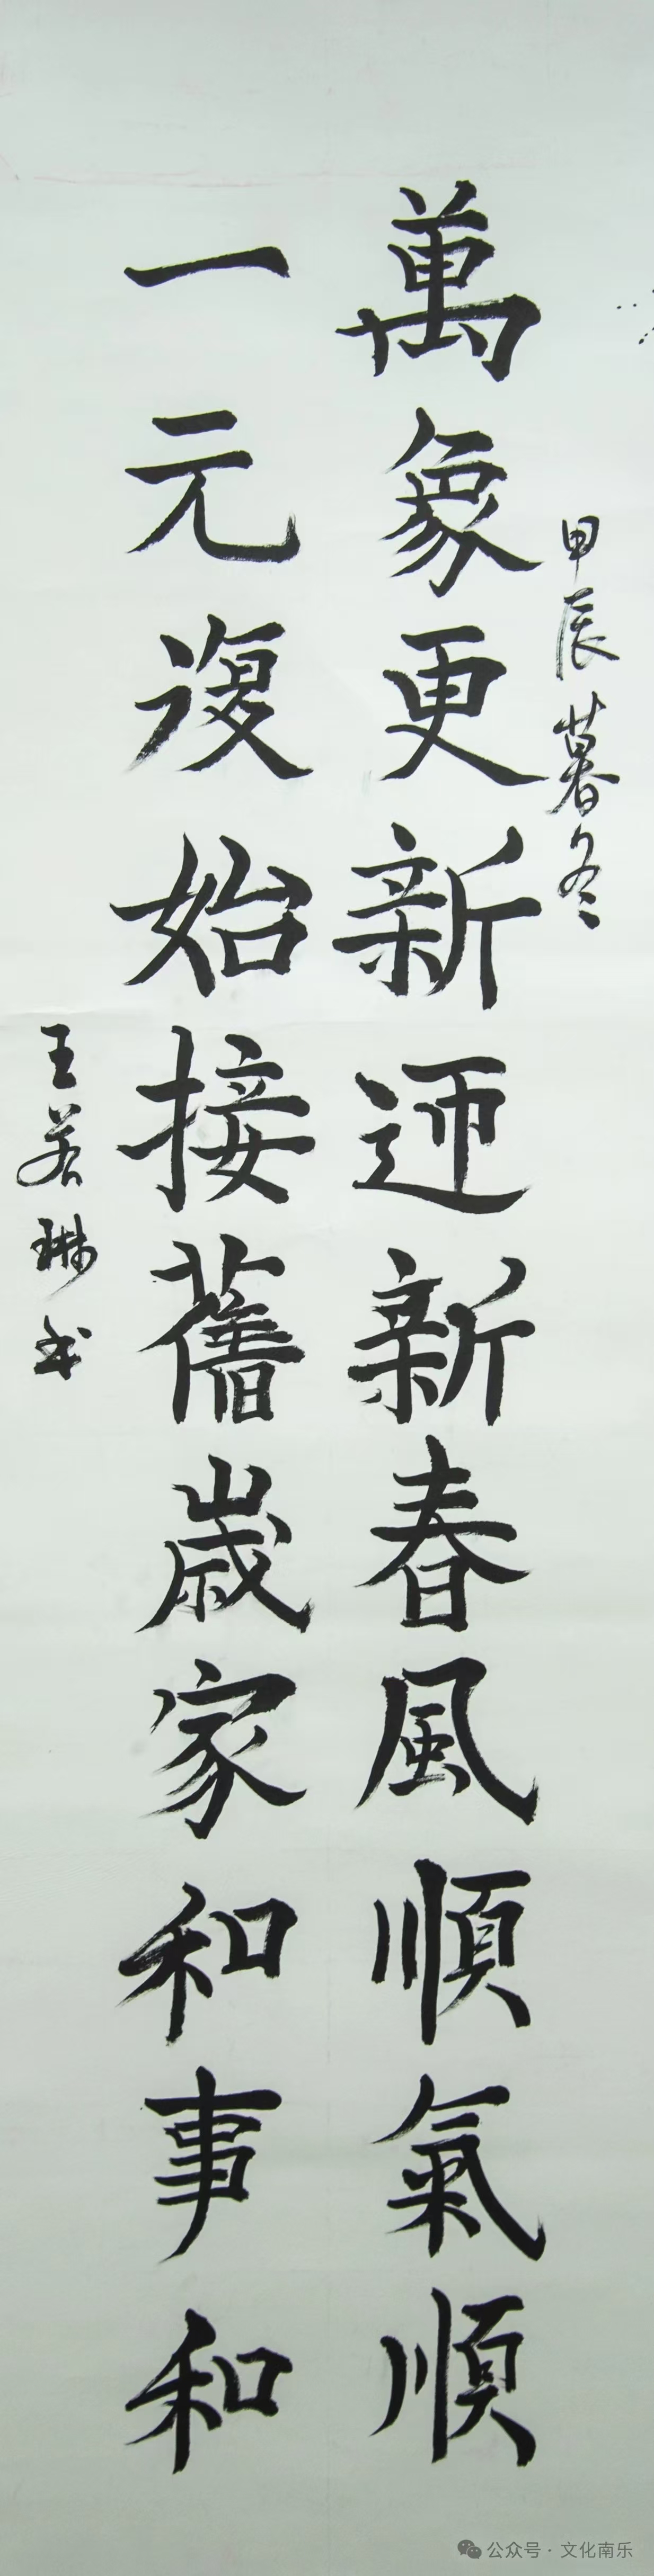 甲辰暮冬
萬象更新迊新春風順氣順
一元復始接舊歲家和事和
王若琳书
公众号·文化南乐